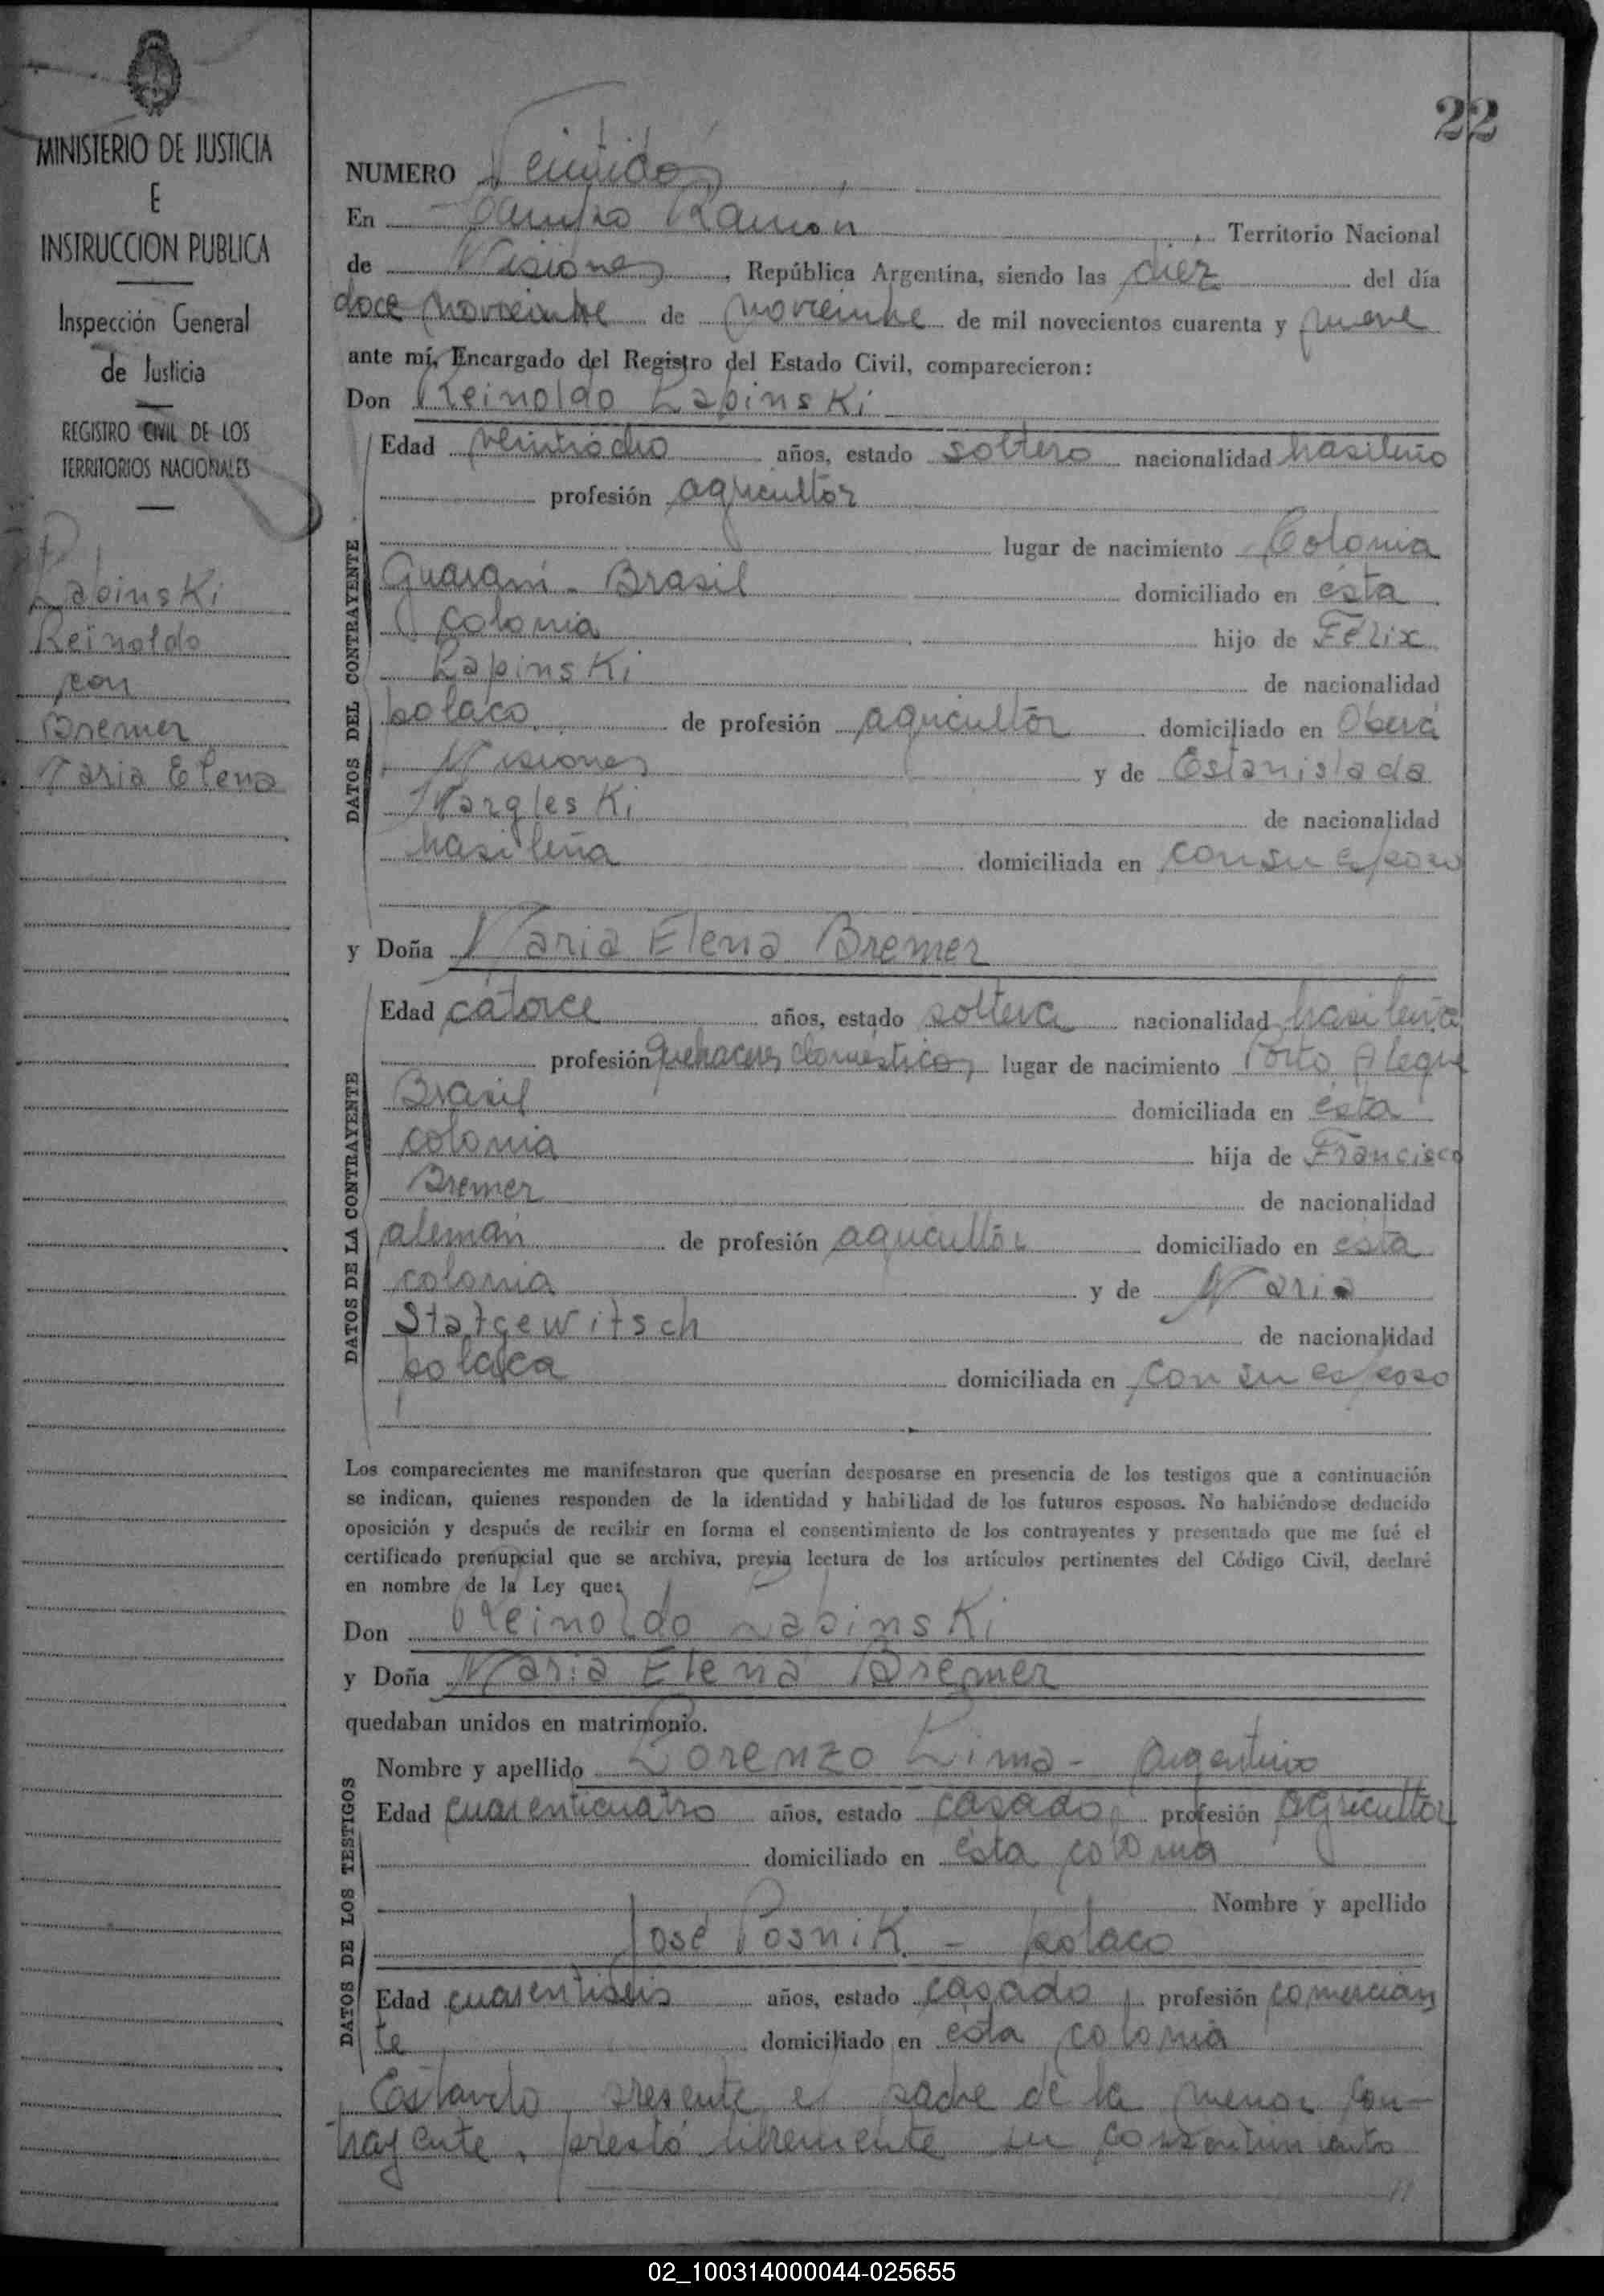 22
MINISTERIO DE JUSTICIA
E
INSTRUCCION PUBLICA
Inspección General
de Justicia
REGISTRO CIVIL DE LOS
TERRITORIOS NACIONALES
Lapinski
Reinoldo
con
Bremer
Maria Elena
NUMERO Veintidos
En Campo Ramón, Territorio Nacional
de Misiones, República Argentina, siendo las diez del día
doce noviembre de noviembre de mil novecientos cuarenta y nueve
ante mí, Encargado del Registro del Estado Civil, comparecieron:
Don Reinoldo Lapinski
DATOS DEL CONTRAYENTE
Edad veintiocho años, estado soltero nacionalidad brasileño
profesión agricultor
lugar de nacimiento Colonia
Guaraní - Brasil domiciliado en ésta
colonia hijo de Félix
Lapinski de nacionalidad
polaco de profesión agricultor domiciliado en Oberá
Misiones y de Estanislada
Margleski de nacionalidad
brasileña domiciliada en con su esposo
y Doña Maria Elena Bremer
DATOS DE LA CONTRAYENTE
Edad catorce años, estado soltera nacionalidad brasileña
profesión quehaceres domésticos lugar de nacimiento Porto Alegre
Brasil domiciliada en ésta
colonia hija de Francisco
Bremer de nacionalidad
alemán de profesión agricultor domiciliado en ésta
colonia y de Maria
Statgewitsch de nacionalidad
polaca domiciliada en con su esposo
Los comparecientes me manifestaron que querían desposarse en presencia de los testigos que a continuación
se indican, quienes responden de la identidad y habilidad de los futuros esposos. No habiéndose deducido
oposición y después de recibir en forma el consentimiento de los contrayentes y presentado que me fué el
certificado prenupcial que se archiva, previa lectura de los artículos pertinentes del Código Civil, declaré
en nombre de la Ley que:
Don Reinoldo Lapinski
y Doña Maria Elena Bremer
quedaban unidos en matrimonio.
DATOS DE LOS TESTIGOS
Nombre y apellido Lorenzo Lima - argentino
Edad cuarenticuatro años, estado casado, profesión agricultor
domiciliado en ésta colonia
Nombre y apellido
José Posnik - polaco
Edad cuarentiséis años, estado casado, profesión comercian
te domiciliado en esta colonia
Estando presente el padre de la menor con-
trayente, prestó libremente su consentimiento
02_100314000044-025655